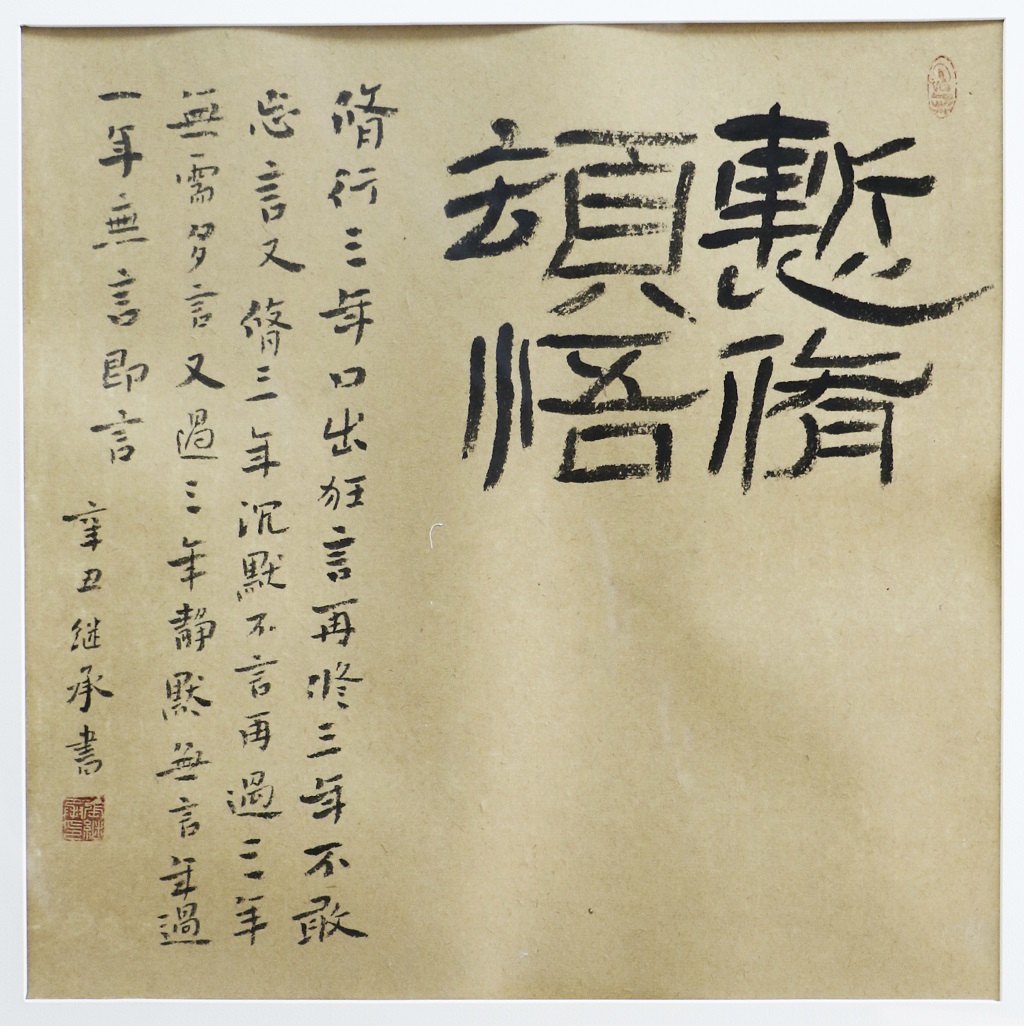 慙脩
頓悟
脩行三年口出狂言再修三年不敢
忘言又脩三年沉默不言再過三年
無需多言又過三年靜默無言年過
一年無言即言
辛丑继承書